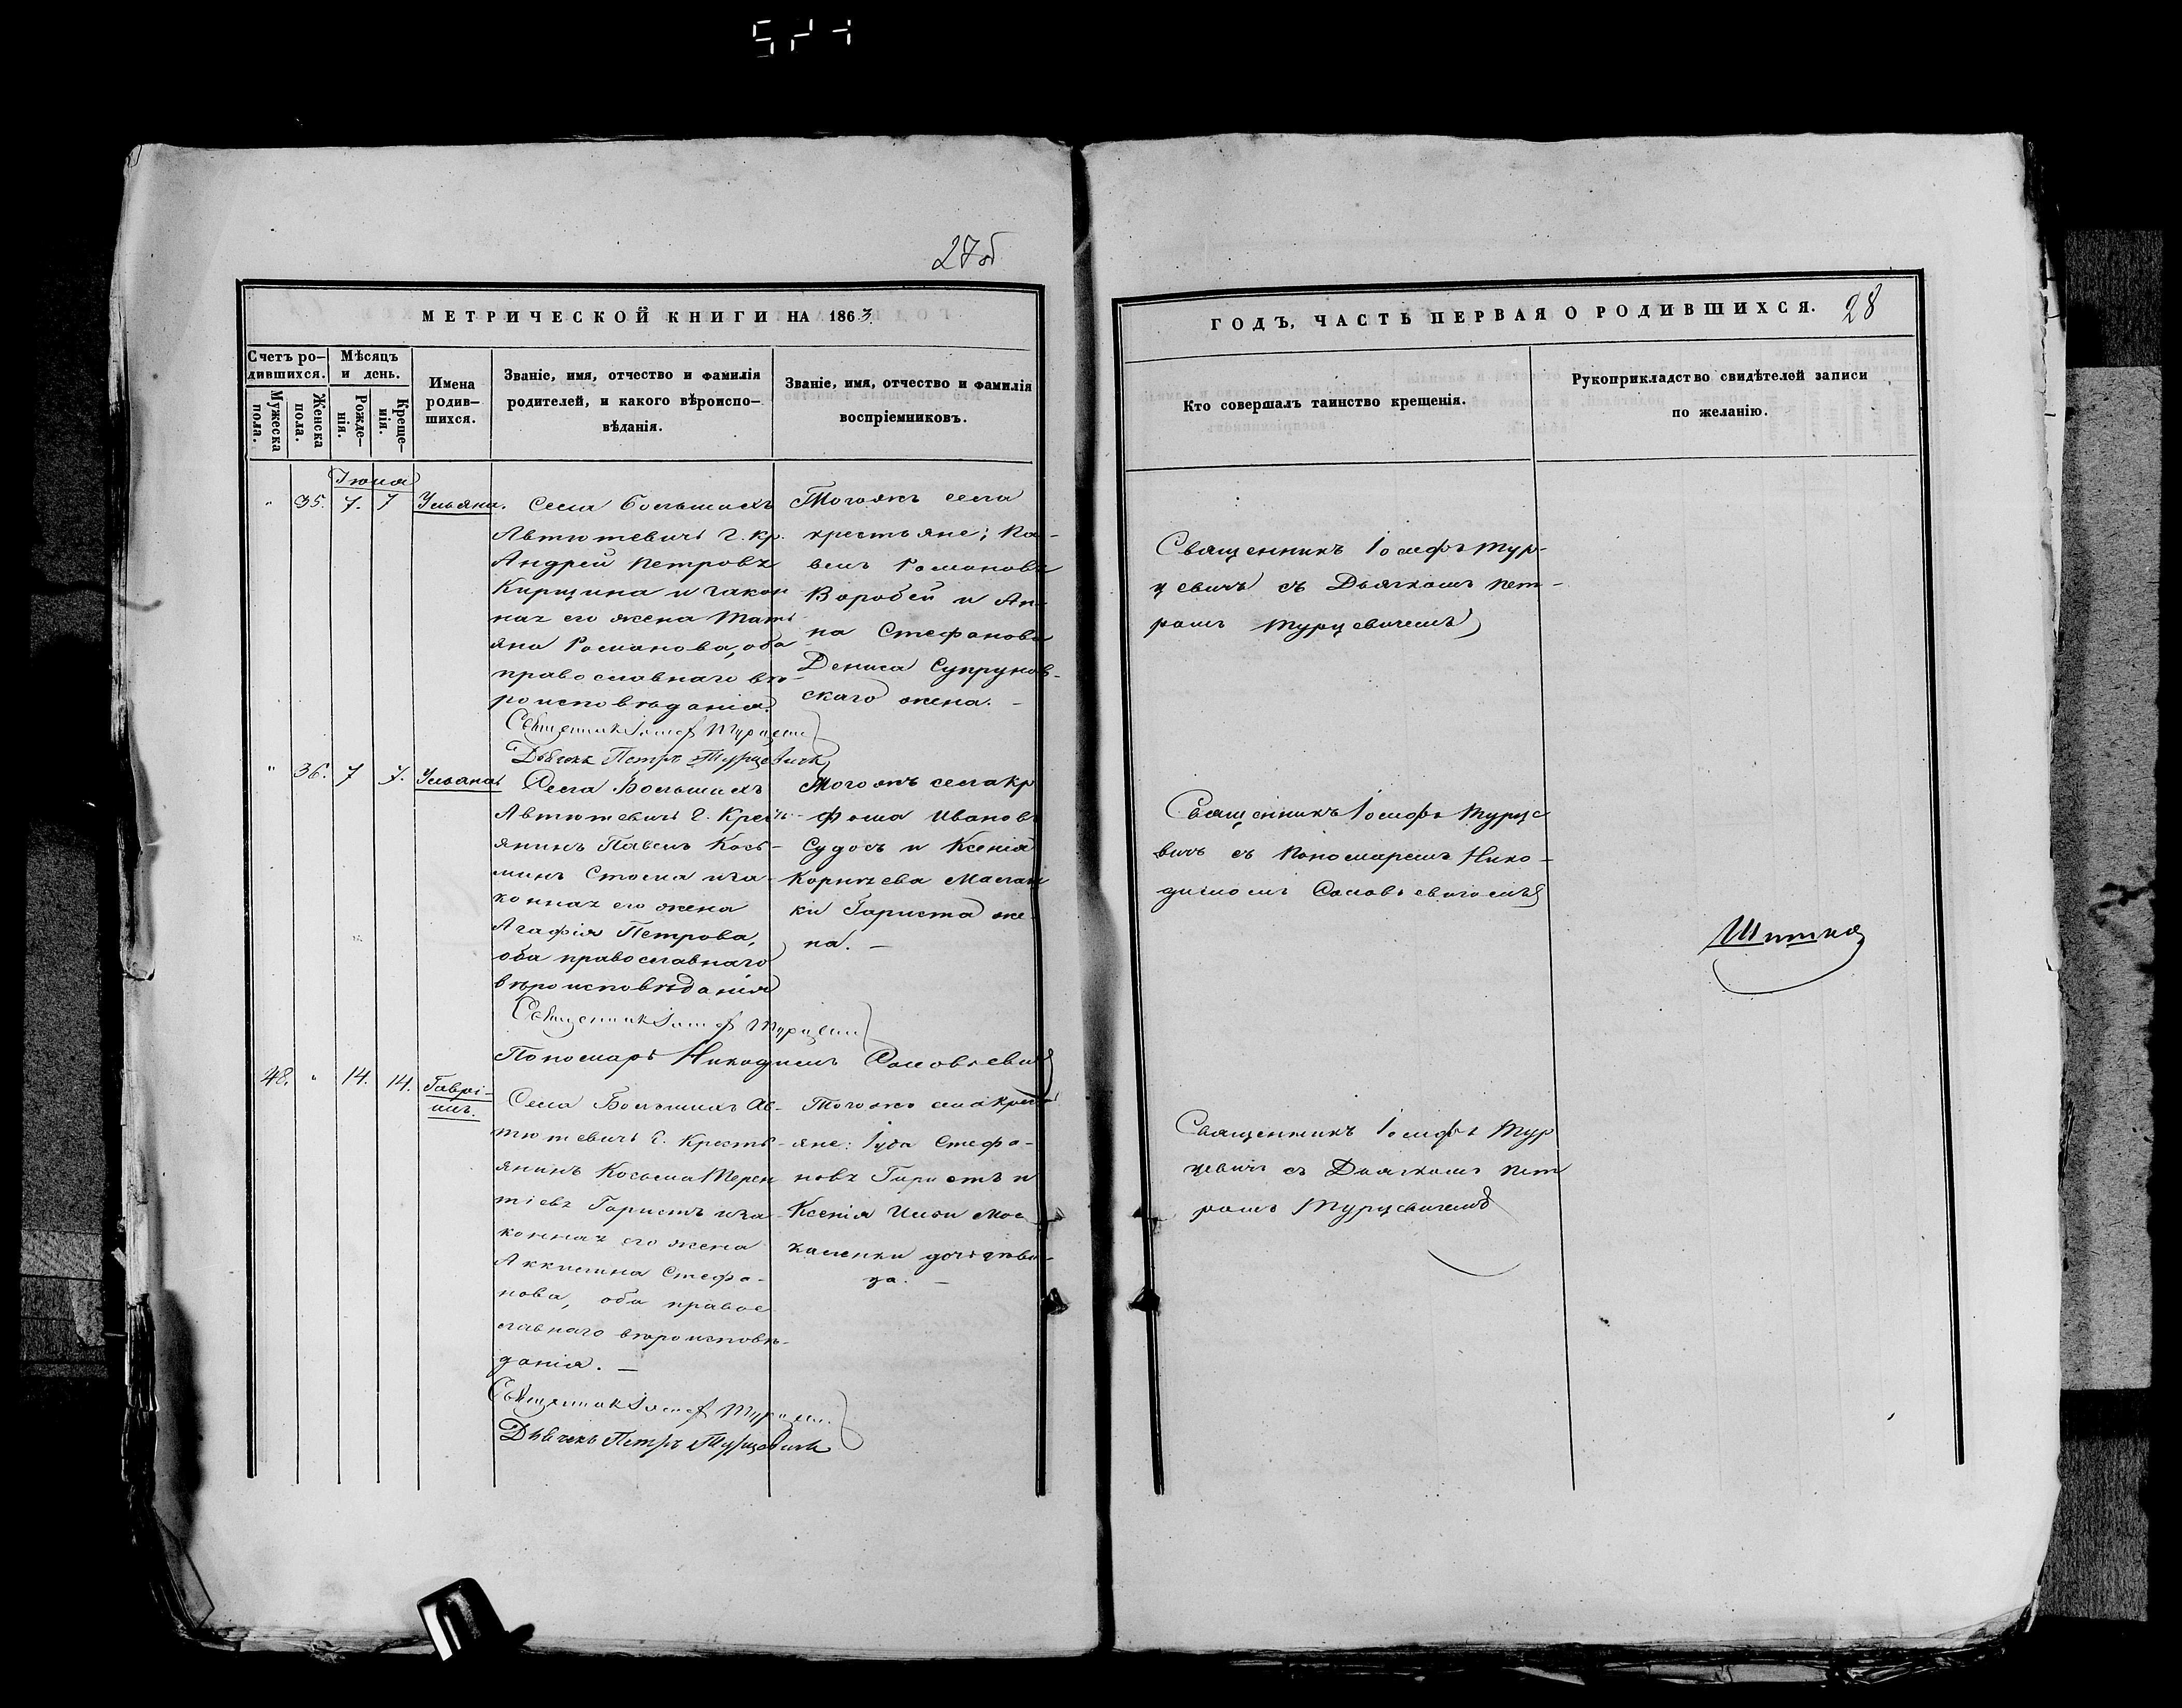 27об
МЕТРИЧЕСКОЙ КНИГИ НА 1863
Счетъ ро-
дившихся.
Мужеска пола.
Женска пола.
Мѣсяцъ
и день.
Рожде-
нія.
Креще-
нія.
Имена
родив-
шихся.
Званіе, имя, отчество и фамилія
родителей, и какого вѣроиспо-
вѣданія.
Званіе, имя, отчество и фамилія
воспріемниковъ.
Іюня
" 35. 7. 7 Ульяна.
Села Большихъ
Автютевичъ г. кр.
Андрей Петровъ
Кирщина и закон
ная его жена Тать
яна Романова, оба
православнаго вѣ-
роисповѣданія.
Священникъ Іосифъ Турцевич
Дьячекъ Петръ Турцевичъ
Тогожъ села
крестьяне; Па-
велъ Романовъ
Воробей и Ан-
на Стефанова
Дениса Супрунов-
скаго жена. –
" 36. 7 7. Ульяна
Села Большихъ
Автютевичъ г. Кресть-
янинъ Павелъ Кось-
минъ Стома и за-
конная его жена
Агафія Петрова,
оба православнаго
вѣроисповѣданія
Священникъ Іосифъ Турцевич
Пономарь Никодимъ Соловьевичъ
Тогожъ села кр
Фома Ивановъ
Судосъ и Ксенія
Корнѣева Маслан
ки Гариста же-
на. –
48. " 14. 14. Гаврі-
илъ.
Села Большихъ Ав-
тютевичъ г. Кресть-
янинъ Косьма Терен
тіевъ Гаристъ и за-
конная его жена
Аккилина Стефа-
нова, оба правос
лавнаго вѣроисповѣ-
данія. –
Священникъ Іосифъ Турцевич
Дьячекъ Петръ Турцевичъ
Тогожъ села кресть
яне: Іуда Стефа-
новъ Гаристъ и
Ксенія Ильи Мос
каленки дочь дѣви-
ца. –
ГОДЪ, ЧАСТЬ ПЕРВАЯ О РОДИВШИХСЯ. 28
Кто совершалъ таинство крещенія.
Рукоприкладство свидѣтелей записи
по желанію.
Священникъ Іосифъ Тур-
цевичъ съ Дьячкомъ Пет-
ромъ Турцевичемъ
Священникъ Іосифъ Турце
вичъ съ Пономаремъ Нико-
димомъ Соловьевичемъ
Священникъ Іосифъ Тур
цевичъ съ Дьячкомъ Пет
ромъ Турцевичемъ